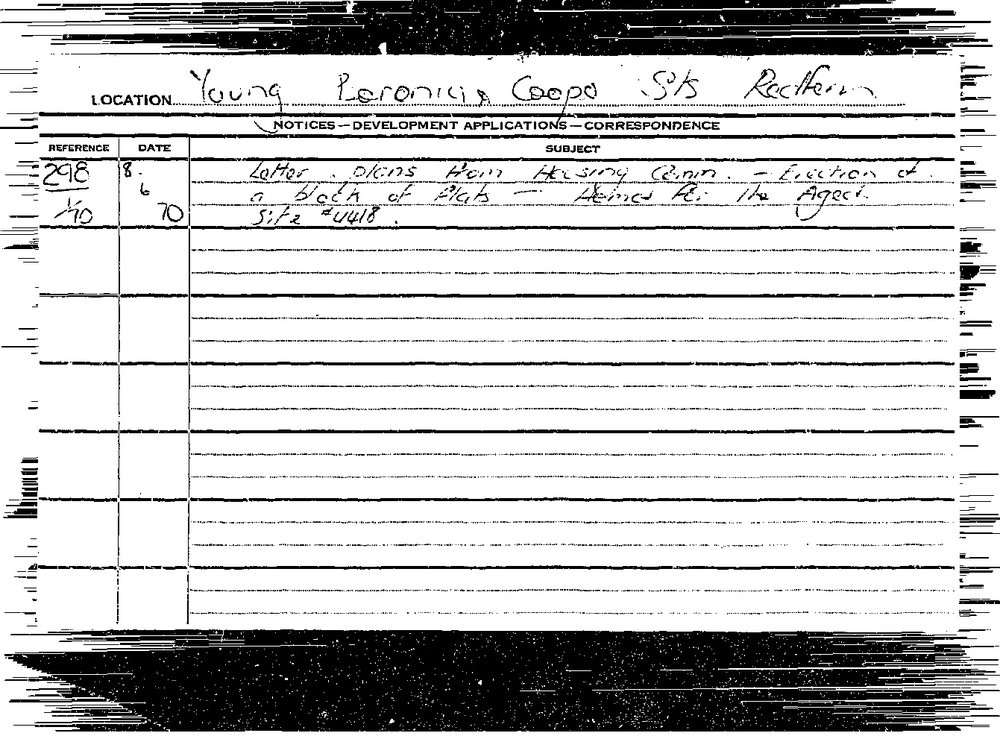 LOCATION Young Baronia & Coopa Sts Redfern
NOTICES—DEVELOPMENT APPLICATIONS—CORRESPONDENCE
REFERENCE DATE SUBJECT
298 8. Letter . plans from Housing Comm. — Erection of
6 a block of flats — Homes For the Aged.
1/70 70 Site #4418.